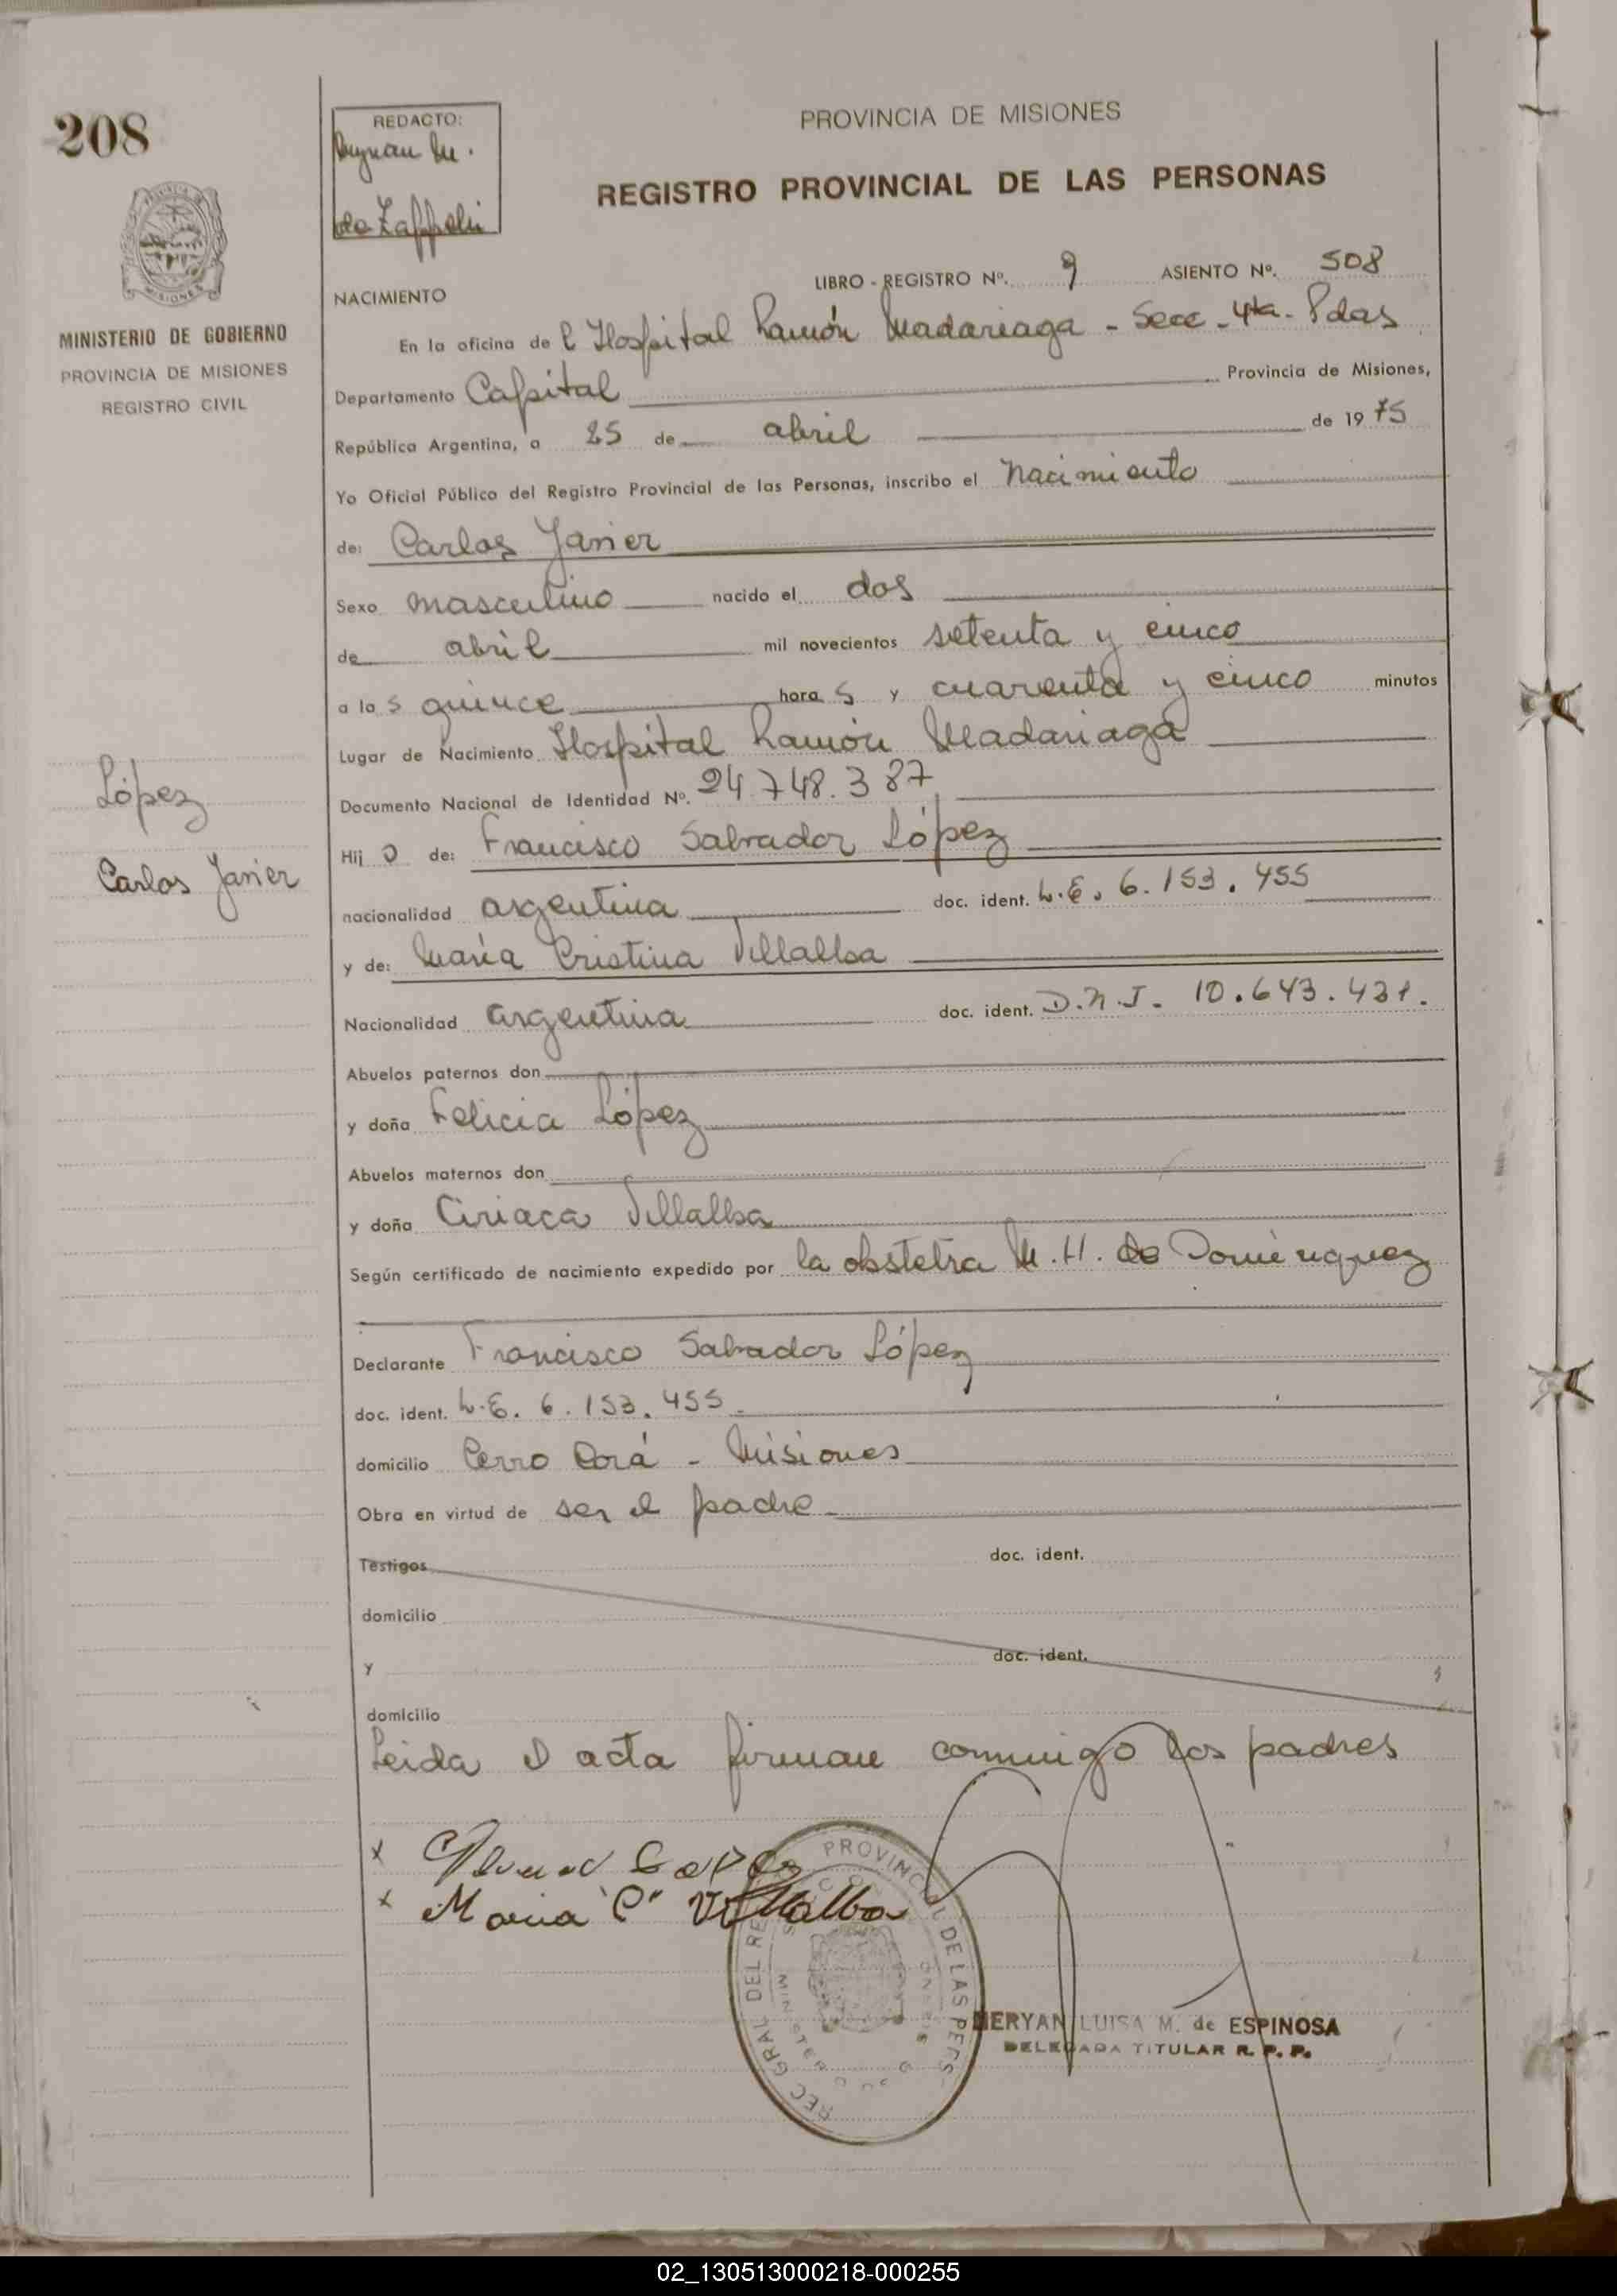 208
REDACTO:
de Zappelli
PROVINCIA DE MISIONES
REGISTRO PROVINCIAL DE LAS PERSONAS
MINISTERIO DE GOBIERNO
PROVINCIA DE MISIONES
REGISTRO CIVIL
López
Carlos Javier
LIBRO - REGISTRO Nº. 9 ASIENTO Nº. 508
NACIMIENTO
En la oficina de l Hospital Ramón Madariaga - Secc - 4ta - Pdas
Departamento Capital Provincia de Misiones,
República Argentina, a 25 de abril de 1975
Yo Oficial Público del Registro Provincial de las Personas, inscribo el Nacimiento
de: Carlos Javier
Sexo masculino nacido el dos
de abril mil novecientos setenta y cinco
a las quince horas y cuarenta y cinco minutos
Lugar de Nacimiento Hospital Ramón Madariaga
Documento Nacional de Identidad Nº. 24.748.387
Hijo de: Francisco Salvador López
nacionalidad argentina doc. ident. L.E. 6.153.455
y de: María Cristina Villalba
Nacionalidad argentina doc. ident. D.N.I. 10.643.431.
Abuelos paternos don
y doña Felicia López
Abuelos maternos don
y doña Ciriaca Villalba
Según certificado de nacimiento expedido por la obstetra M.H. de Domínquez
Declarante Francisco Salvador López
doc. ident. L.E. 6.153.455
domicilio Cerro Corá - Misiones
Obra en virtud de ser el padre
Testigos doc. ident.
domicilio
y doc. ident.
domicilio
Leida el acta firman conmigo los padres
x López
x Maria "C" Villalba
NERYAN LUISA M. de ESPINOSA
DELEGADA TITULAR R. P. P.
02_130513000218-000255